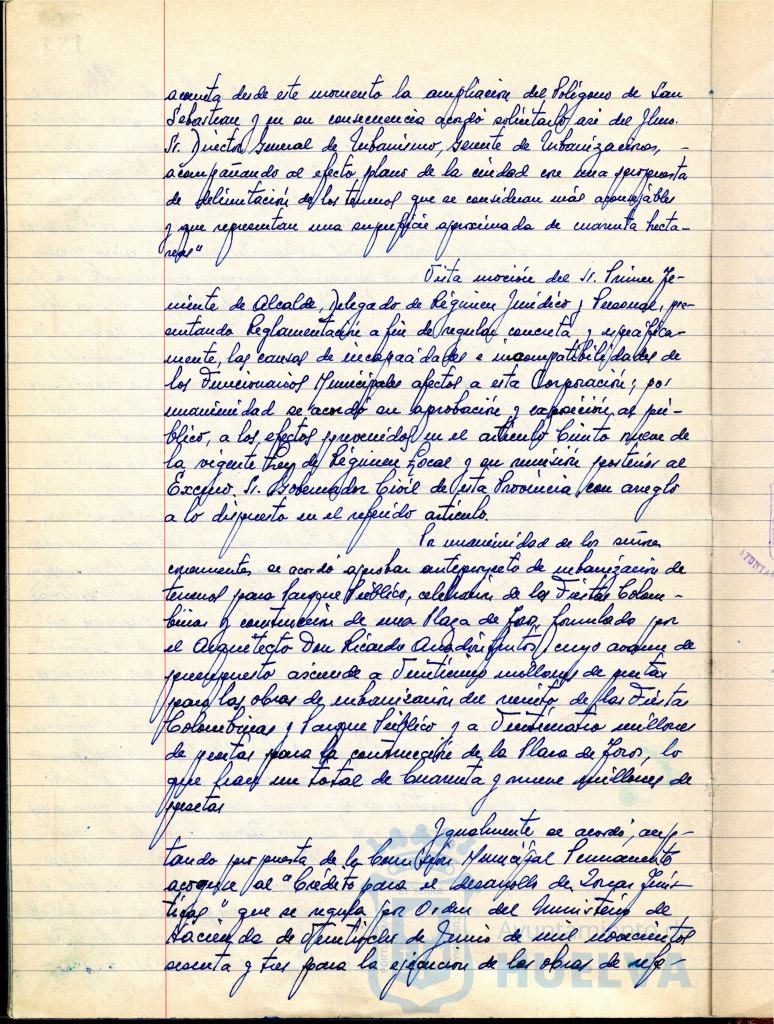 acometa desde este momento la ampliación del Polígono de San
Sebastian y en su consecuencia acordó solicitarlo asi del Ilmo.
Sr. Director General de Urbanismo, Gerente de Urbanizaciones, -
acompañando al efecto plano de la ciudad con una propuesta
de delimitación de los terrenos que se consideran más aconsejables
y que representan una superficie aproximada de cuarenta hecta-
reas"
Vista moción del Sr. Primer Te-
niente de Alcalde, Delegado de Régimen Jurídico y Personal, pre-
sentando Reglamentación a fin de regular concreta y específica-
mente, las causas de incapacidades e incompatibilidades de
los Funcionarios Municipales afectos a esta Corporación; por
unanimidad se acordó su aprobación y exposición al pú-
blico, a los efectos prevenidos en el artículo Ciento nueve de
la vigente Ley de Régimen Local y su remisión posterior al
Excmo. Sr. Gobernador Civil de esta Provincia con arreglo
a lo dispuesto en el referido artículo.
Por unanimidad de los señores
concurrentes se acordo aprobar anteproyecto de urbanización de
terrenos para Parque Público, celebración de las Fiestas Colom-
binas y construcción de una Plaza de Toros, formulado por
el Arquitecto Don Ricardo Anadón cuyo avance de
presupuesto asciende a Veinticinco millones de pesetas
para las obras de urbanización del recinto de las Fiestas
Colombinas y Parque Público y a Veinticuatro millones
de pesetas para la construcción de la Plaza de Toros, lo
que hace un total de Cuarenta y nueve millones de
pesetas
Igualmente se acordó, acep-
tando propuesta de la Comisión Municipal Permanente
acogerse al "Crédito para el desarrollo de Zonas Turís-
ticas" que se regula por Orden del Ministerio de
Hacienda de Veintiocho de Junio de mil novecientos
sesenta y tres para la ejecución de las obras de refe-
Ayuntamiento de
HUELVA